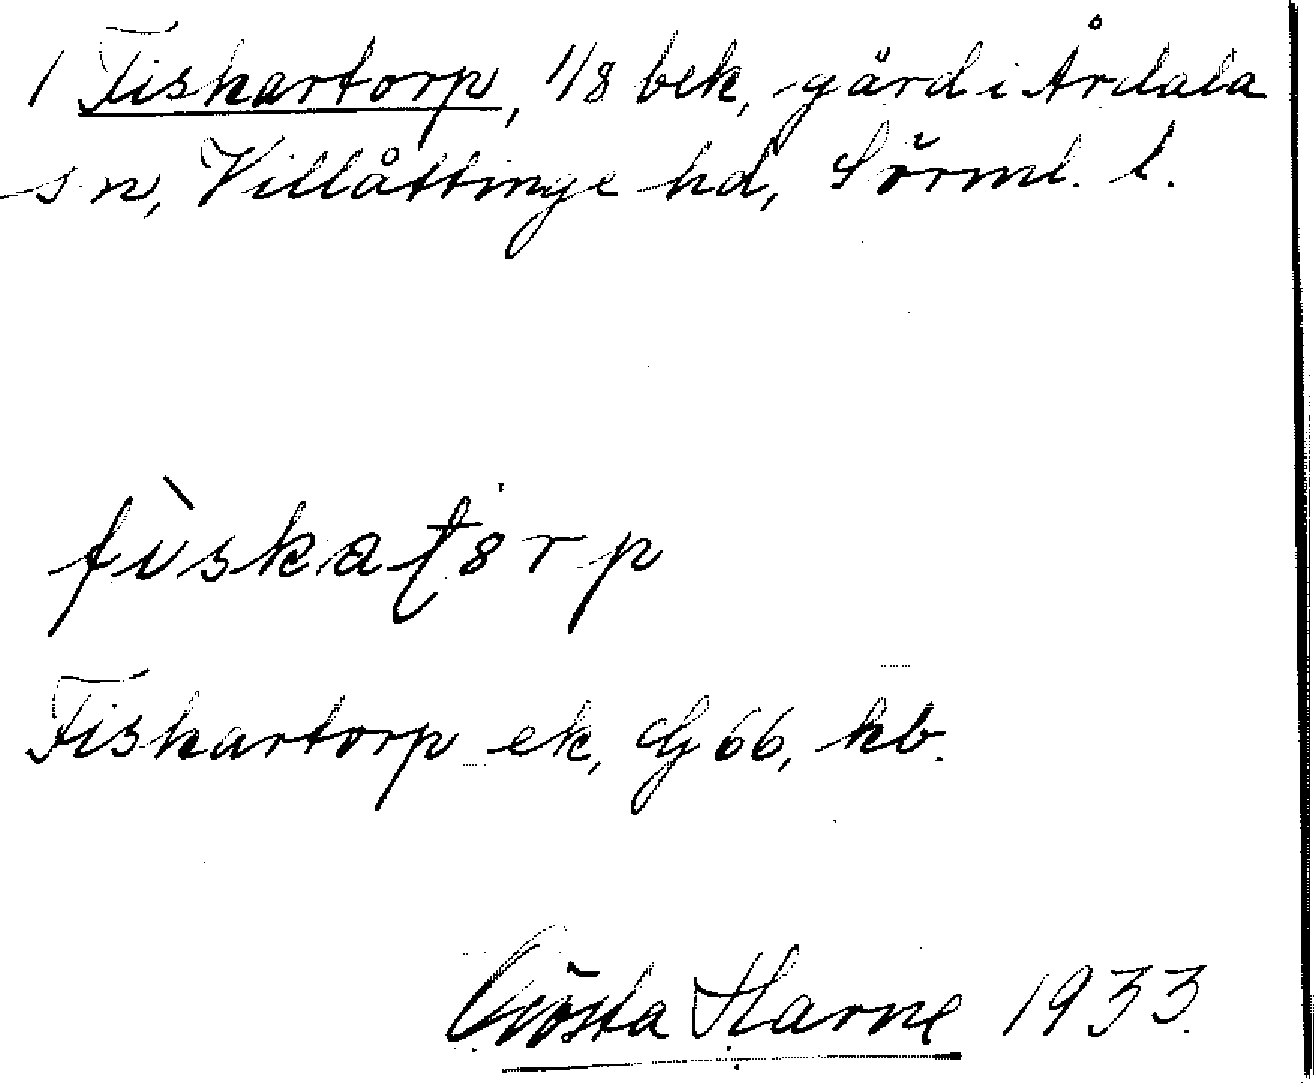 1 Fiskartorp, 1/8 bek, gård i Årdala
sn, Villåttinge hd, Sörml. l.
fìskatɔrp
Fiskartorp ek, GJ 66, kb.
Gösta Harne 1933